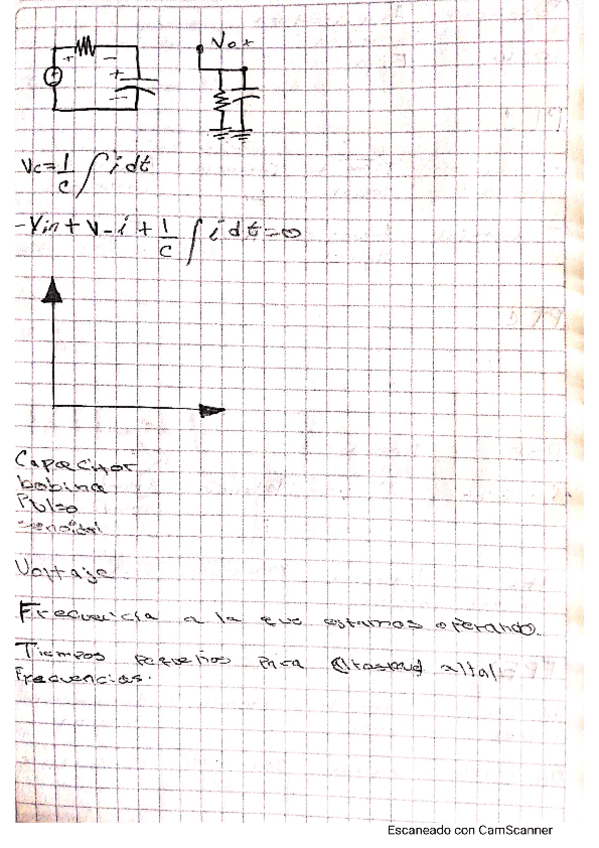 + - + -
Vo+
Vc = 1/c ∫ i dt
-Vin + V-i + 1/c ∫ i dt = 0
Capacitor
bobina
Pulso
Voltaje
Frecuencia a la que estamos operando.
Tiempos pequeños para altas
frecuencias.
Escaneado con CamScanner